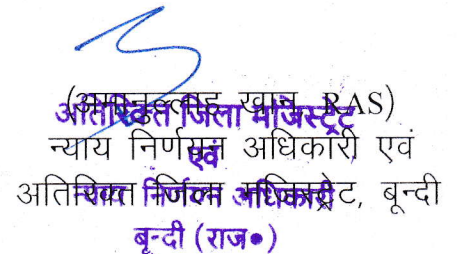 (अमानुल्लाह खान RAS)
न्याय निर्णयन अधिकारी एवं
अतिरिक्त जिला मजिस्ट्रेट, बून्दी
अतिरिक्त जिला मजिस्ट्रेट
एवं
न्याय निर्णयन अधिकारी
बून्दी (राज०)